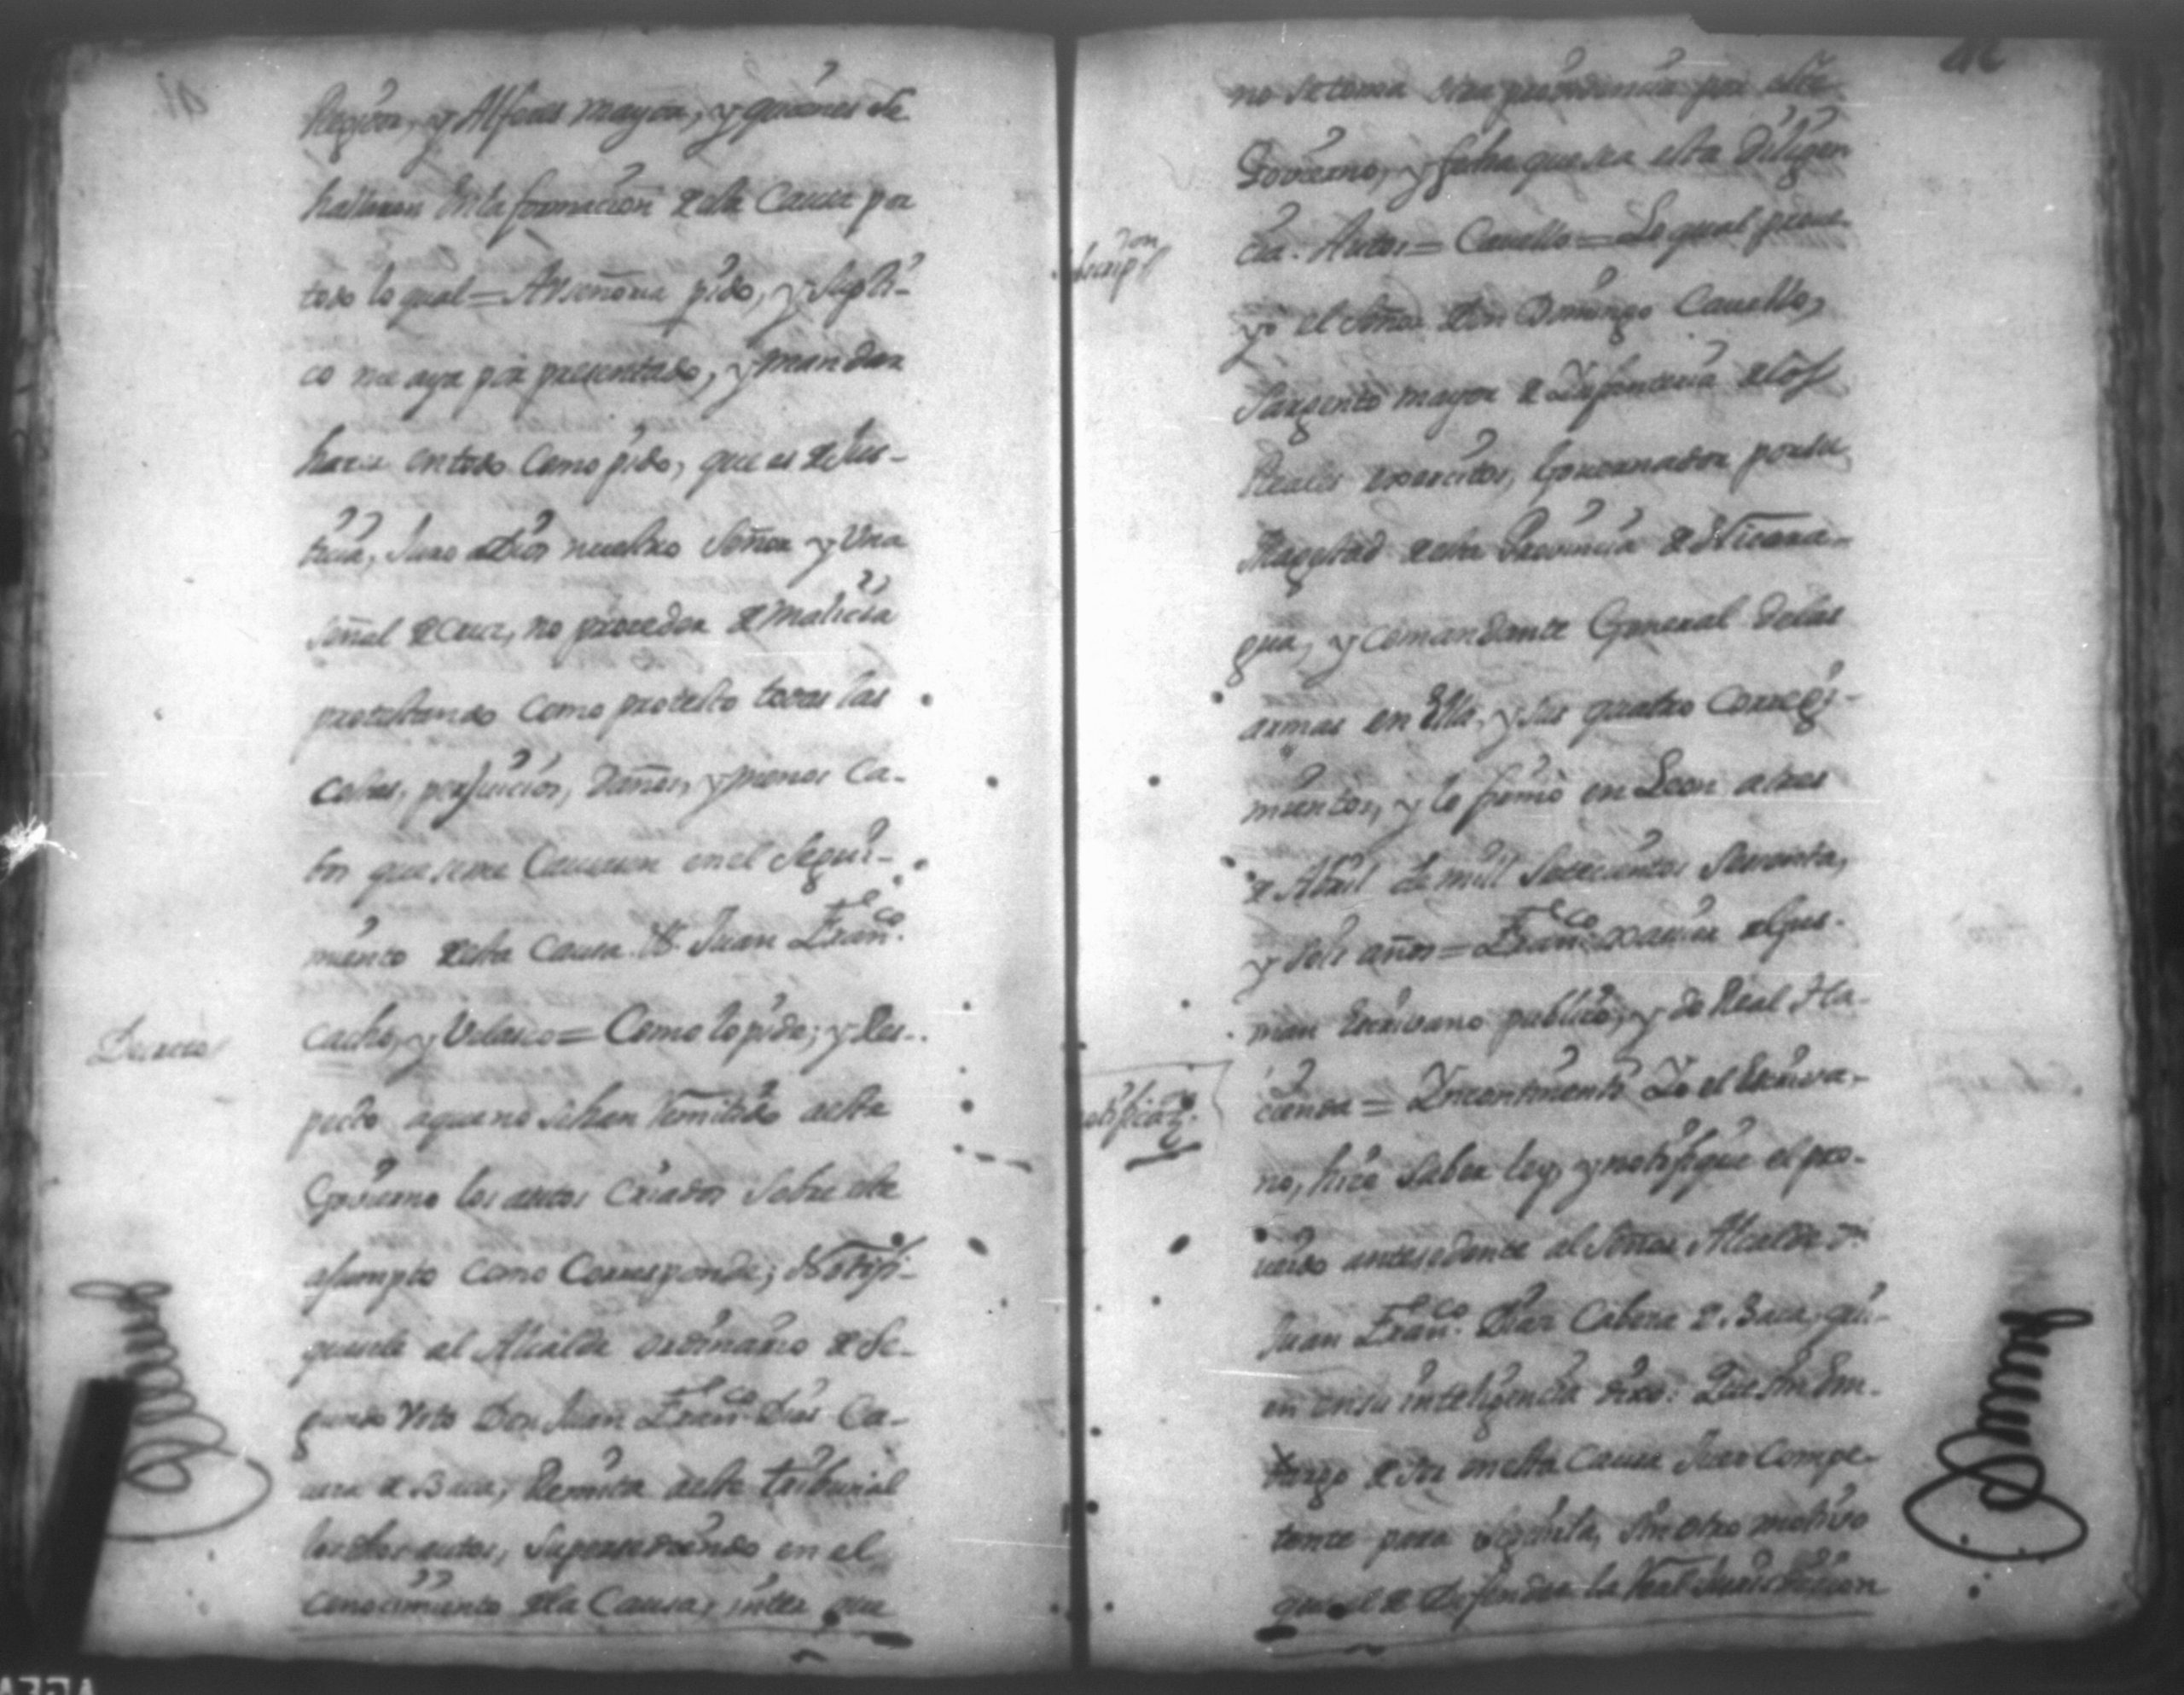 Regidor, y Alferes mayor, y quienes se
hallaron en la formacion de esta Causa por
todo lo qual = A Vseñoria pido, y supli-
co me aya por presentado, y mandar
hacer en todo como pido, que es de Jus-
ticia, Juro a Dios nuestro Señor y Una
Señal de Cruz, no proceder de malicia
protestando como protesto todas las
costas, perjuicios, daños, y menos ca-
bos que se me Causaren en el Segui-
miento de esta Causa. Dn. Juan Franco.
Decreto
Cacho, y Velasco = Como lo pide; y Res-
pecto a que no se han Remitido a este
Govierno los autos Criados sobre este
asumpto como Corresponde; Notifi-
quesele al Alcalde ordinario de Se-
gundo Voto Don Juan Franco. Dias Ca-
vera de Baca, Remita a este tribunal
los dhos autos, Supersediendo en el
conocimiento de la Causa, inter que
no se toma otra providencia por este
Govierno, y fecha que sea esta Diligen
cia. Autos = Cavello = Lo qual provei
Subscripcion
yo el Señor Don Domingo Cavello,
Sargento mayor de Infanteria de los
Reales exercitos, Governador por su
Magestad de esta Provincia de Nicara-
gua, y Comandante General de las
armas en Ella y sus quatro Corregi-
mientos, y lo firmó en Leon a tres
de Abril de mill Setecientos Sesenta,
y seis años = Franco. xavier de Gus-
man Escrivano publico, y de Real Ha-
cienda = Incontinenti Yo el Escriva-
Notificazn.
no, hice saber ley, y notifique el pro-
veido antesedente al Señor Alcalde Dn.
Juan Franco. Dias Cabera de Baca, qui-
en en su inteligencia dixo: Que sin Em-
bargo de ser en esta Causa Juez Compe-
tente para seguirla, sin otro motivo
que el de Defender la Real Jurisdicion